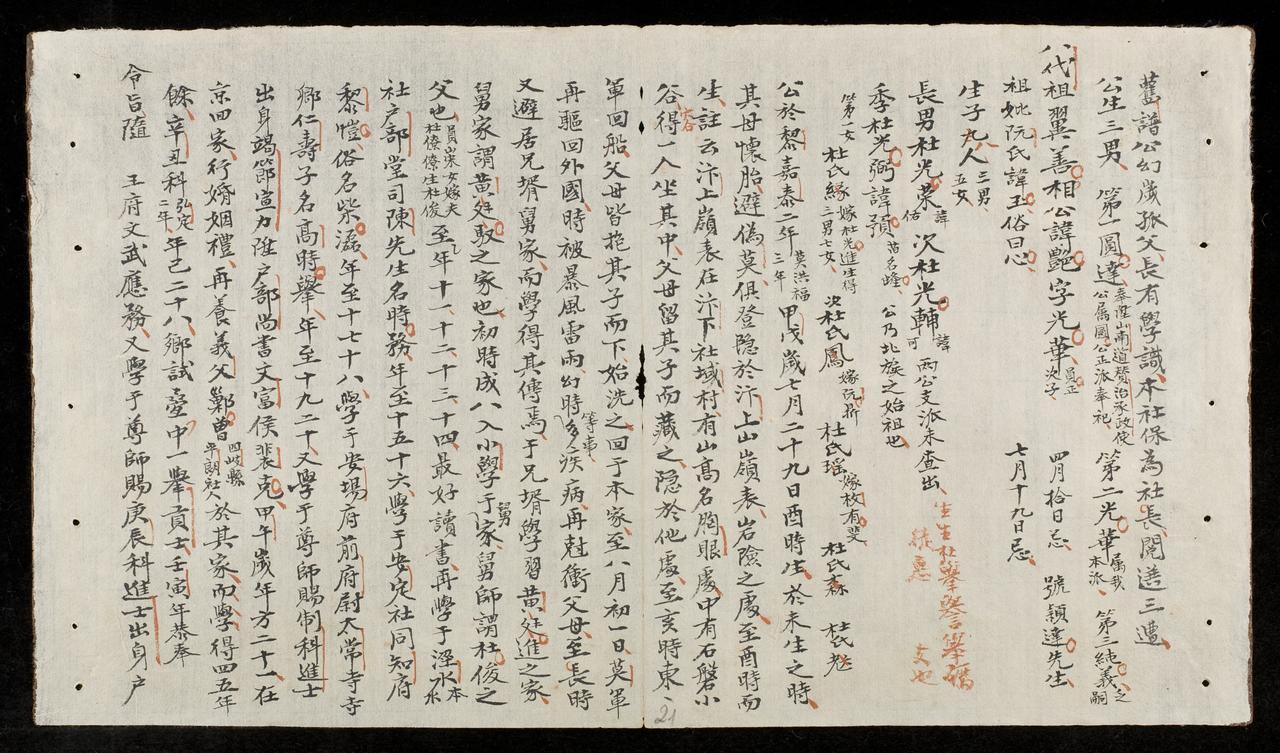 舊譜公幻歲孤父長有學識本社保為社長閱選三遭
公生三男 第一圓達 奉陞山南道贊治承政使 公属國公正派奉祀 第二光華 属我本派 第三純義 之嗣
八代祖翼善相公諱艷字光華 員正次子 四月拾日忌 號穎達先生
祖妣阮氏諱玉俗曰心 七月十九日忌
生子九人 三男五女
長男杜光荣 諱佑 次杜光輔 諱可 兩公支派未查出
季杜光弼諱預 公乃北族之始祖也
第一女 杜氏緣 嫁杜光進生得三男七女 次杜氏鳳 嫁阮 杜氏瑶 嫁枚有斐 杜氏森 杜氏
公於黎嘉泰二年 莫洪福三年 甲戌歲七月二十九日酉時生於未生之時
其母懷胎避偽莫俱登隐於汴上山嶺表岩險之處至酉時而
生註云汴上嶺表在汴下社域村有山高名胸眼處中有石磐小
谷得一入坐其中父母留其子而藏之隐於他處至亥時東
軍回船父母皆抱其子而下始洗之回于本家至八月初一日莫軍
再驅回外國時被暴風雷雨幻時 等事 多疾病再尅衝父母至長時
又避居兄壻舅家而學得其傳焉于兄壻學習黄廷進之家
舅家謂黄廷馭之家也初時成入小學于舅家舅師謂杜俊之
父也 員崇女嫁夫杜橑橑生杜俊 至年十一十二十三十四最好讀書再學于浬水 本
社户部堂司陳先生名時務年至十五十六學于安定社同知府
黎愷俗名柴 年至十七十八學于安場府前府尉太常寺寺
鄉仁壽子名高時舉年至十九二十又學于尊師賜制科進士
出身竭節宣力陞户部尚書文富侯裴克甲午歲年方二十一在
京回家行婚姻禮再養義父鄭曾 四岐縣平朗社人 於其家而學得四五年
餘辛丑科 弘定二年 年已二十八鄉試臺中一舉貢士壬寅年恭奉
令旨隨 王府文武應務又學于尊師賜庚辰科進士出身户
21